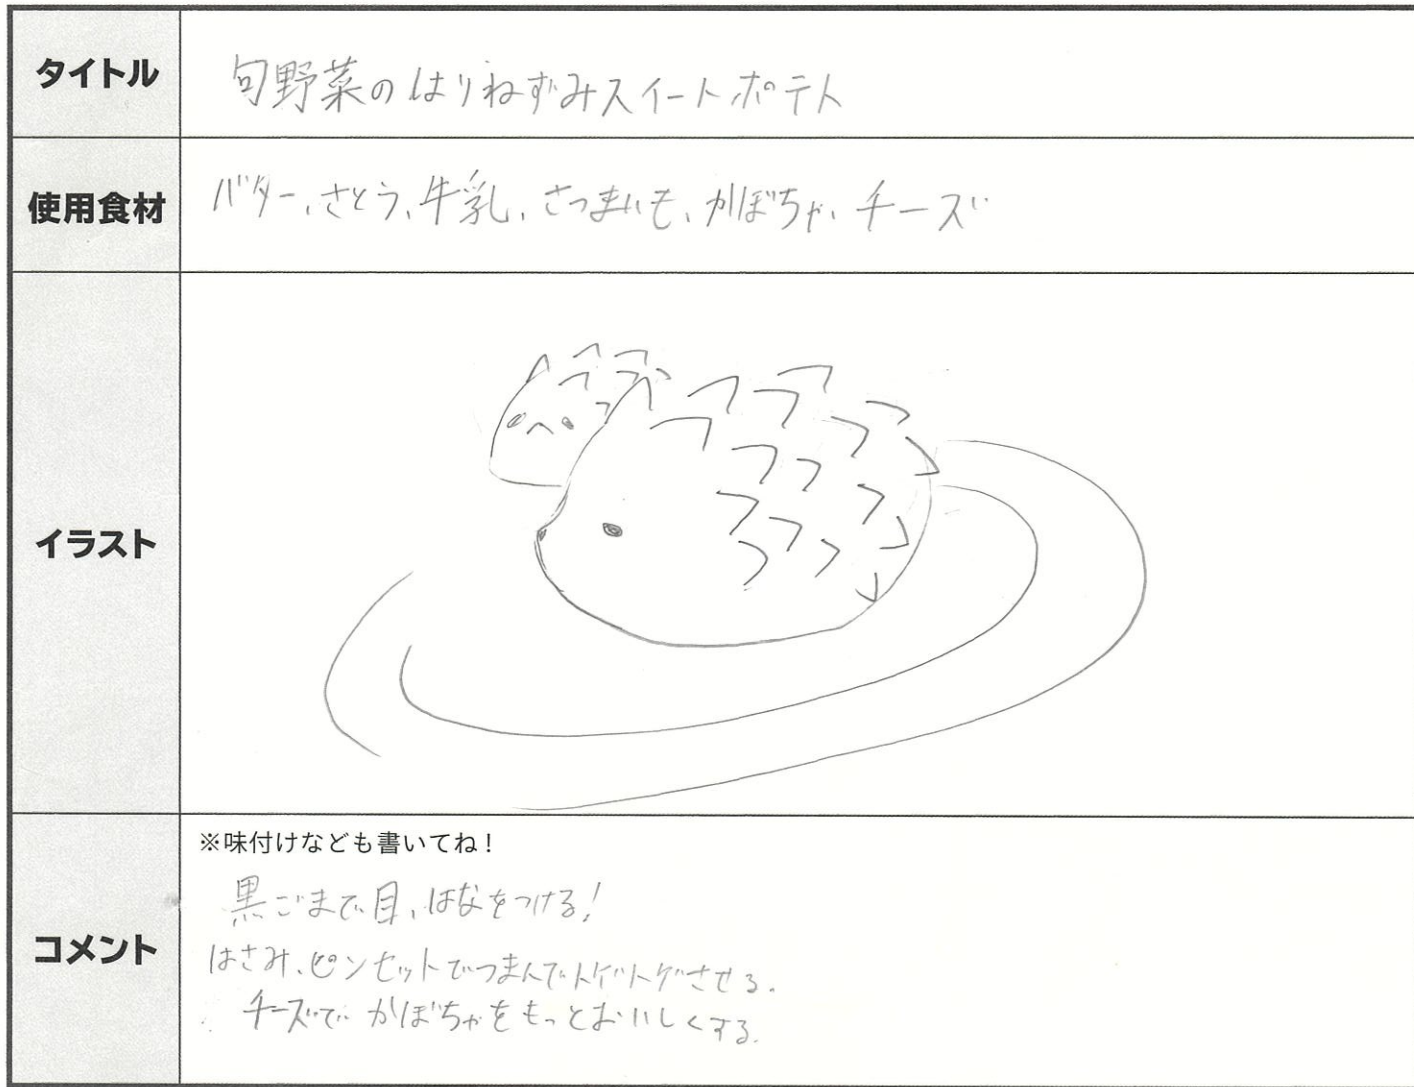 タイトル
旬野菜のはりねずみスイートポテト
使用食材
バター、さとう、牛乳、さつまいも、かぼちゃ、チーズ
イラスト
コメント
※味付けなども書いてね！
黒ごまで目、はなをつける！
はさみ、ピンセットでつまんでトゲトゲさせる。
チーズでかぼちゃをもっとおいしくする。